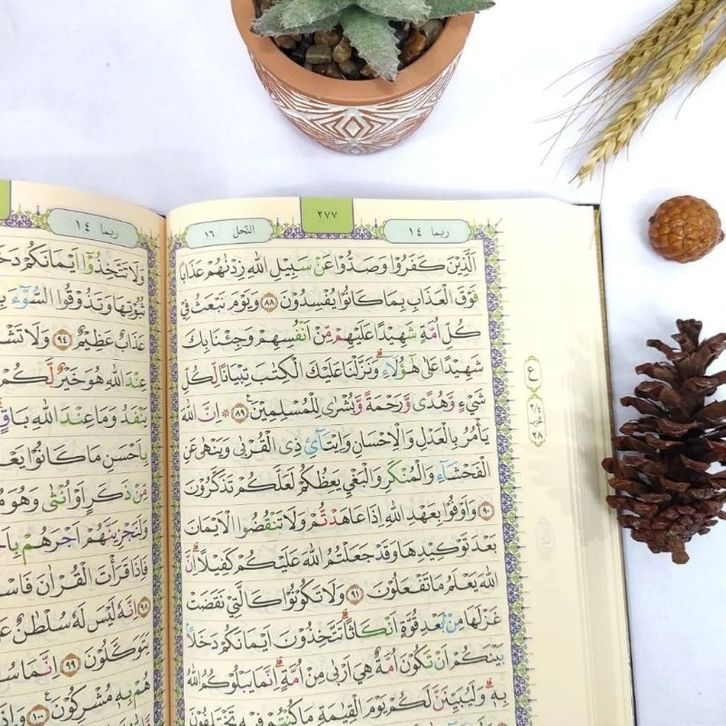 ربما ١٤ ٢٧٧ النحل ١٦
اَلَّذِيْنَ كَفَرُوْا وَصَدُّوْا عَنْ سَبِيْلِ اللّٰهِ زِدْنٰهُمْ عَذَابًا
فَوْقَ الْعَذَابِ بِمَا كَانُوْا يُفْسِدُوْنَ ٨٨ وَيَوْمَ نَبْعَثُ فِيْ
كُلِّ اُمَّةٍ شَهِيْدًا عَلَيْهِمْ مِّنْ اَنْفُسِهِمْ وَجِئْنَا بِكَ
شَهِيْدًا عَلٰى هٰٓؤُلَاۤءِۗ وَنَزَّلْنَا عَلَيْكَ الْكِتٰبَ تِبْيَانًا لِّكُلِّ
شَيْءٍ وَّهُدًى وَّرَحْمَةً وَّبُشْرٰى لِلْمُسْلِمِيْنَ ٨٩ ۞ اِنَّ اللّٰهَ
يَأْمُرُ بِالْعَدْلِ وَالْاِحْسَانِ وَاِيْتَاۤئِ ذِى الْقُرْبٰى وَيَنْهٰى عَنِ
الْفَحْشَاۤءِ وَالْمُنْكَرِ وَالْبَغْيِ يَعِظُكُمْ لَعَلَّكُمْ تَذَكَّرُوْنَ
٩٠ وَاَوْفُوْا بِعَهْدِ اللّٰهِ اِذَا عَاهَدْتُّمْ وَلَا تَنْقُضُوا الْاَيْمَانَ
بَعْدَ تَوْكِيْدِهَا وَقَدْ جَعَلْتُمُ اللّٰهَ عَلَيْكُمْ كَفِيْلًاۗ اِنَّ
اللّٰهَ يَعْلَمُ مَا تَفْعَلُوْنَ ٩١ وَلَا تَكُوْنُوْا كَالَّتِيْ نَقَضَتْ
غَزْلَهَا مِنْۢ بَعْدِ قُوَّةٍ اَنْكَاثًاۗ تَتَّخِذُوْنَ اَيْمَانَكُمْ دَخَلًاۢ
بَيْنَكُمْ اَنْ تَكُوْنَ اُمَّةٌ هِيَ اَرْبٰى مِنْ اُمَّةٍۗ اِنَّمَا يَبْلُوْكُمُ اللّٰهُ
بِهٖۗ وَلَيُبَيِّنَنَّ لَكُمْ يَوْمَ الْقِيٰمَةِ مَا كُنْتُمْ فِيْهِ تَخْتَلِفُوْنَ
ع
٢/٤
حزب
٢٨
ربما ١٤
وَلَا تَتَّخِذُوْٓا اَيْمَانَكُمْ
ثُبُوْتِهَا وَتَذُوْقُوا السُّوْۤءَ
عَذَابٌ عَظِيْمٌ ٩٤ وَلَا
عِنْدَ اللّٰهِ هُوَ خَيْرٌ لَّكُمْ
يَنْفَدُ وَمَا عِنْدَ اللّٰهِ بَاقٍۗ
بِاَحْسَنِ مَا كَانُوْا
مِّنْ ذَكَرٍ اَوْ اُنْثٰى وَهُوَ
وَلَنَجْزِيَنَّهُمْ اَجْرَهُمْ
فَاِذَا قَرَأْتَ الْقُرْاٰنَ
٩٨ اِنَّهٗ لَيْسَ لَهٗ سُلْطٰنٌ
يَتَوَكَّلُوْنَ ٩٩ اِنَّمَا
هُمْ بِهٖ مُشْرِكُوْنَ ١٠٠ وَاِذَا